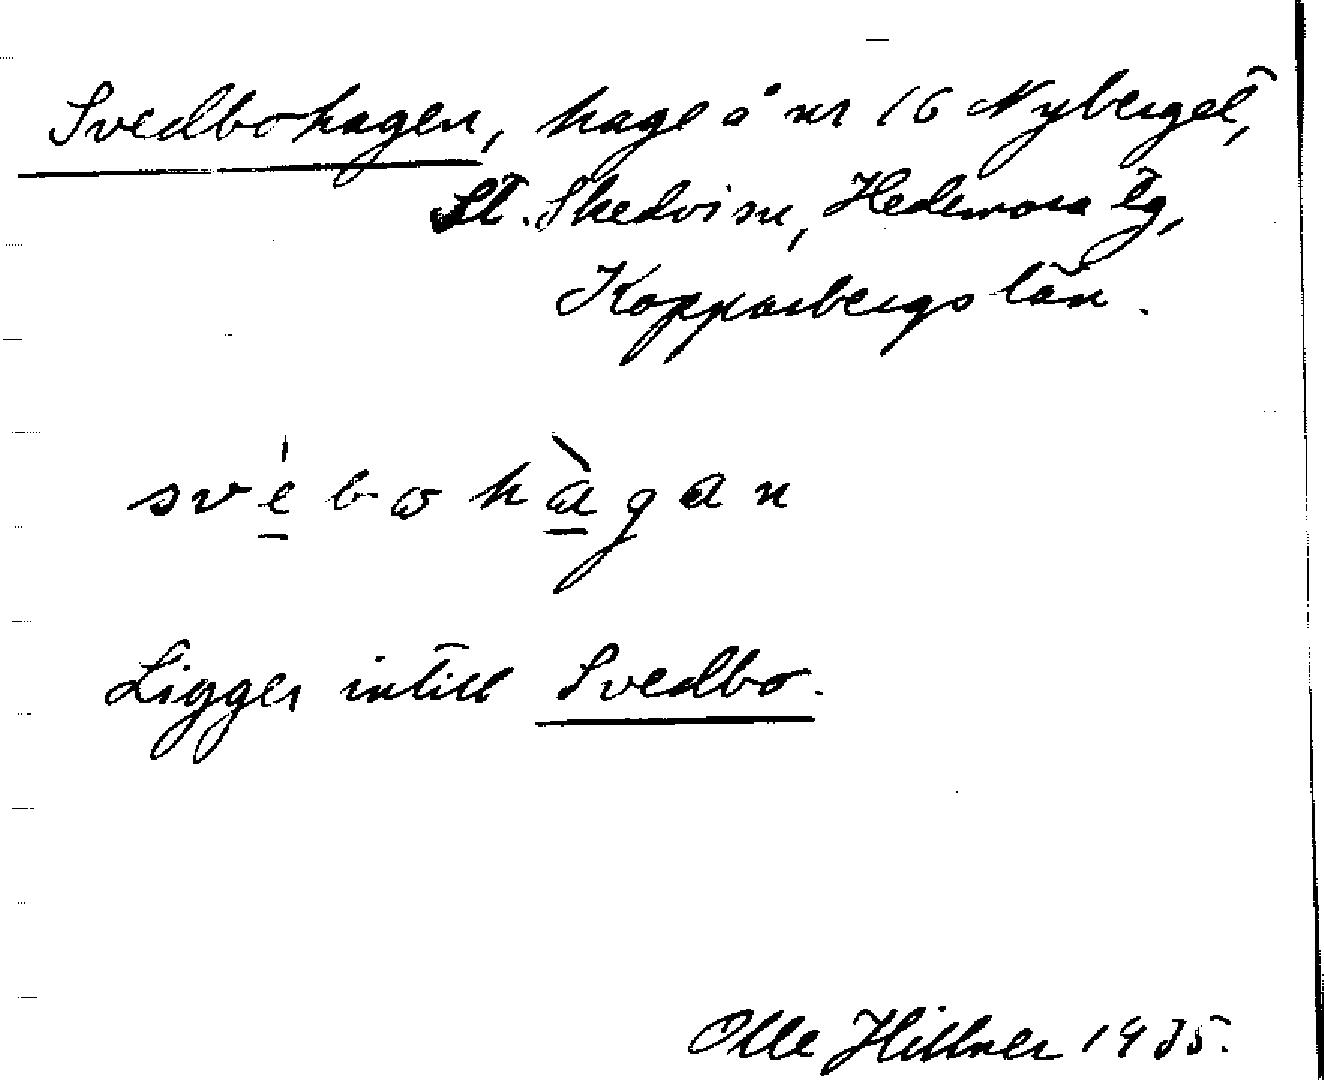 Svedbohagen, hage å nr 16 Nyberget,
St. Skedvi sn, Hedemora tg,
Kopparbergs län.
svèbωhàgan
Ligger intill Svedbo.
Olle Hillner 1935.